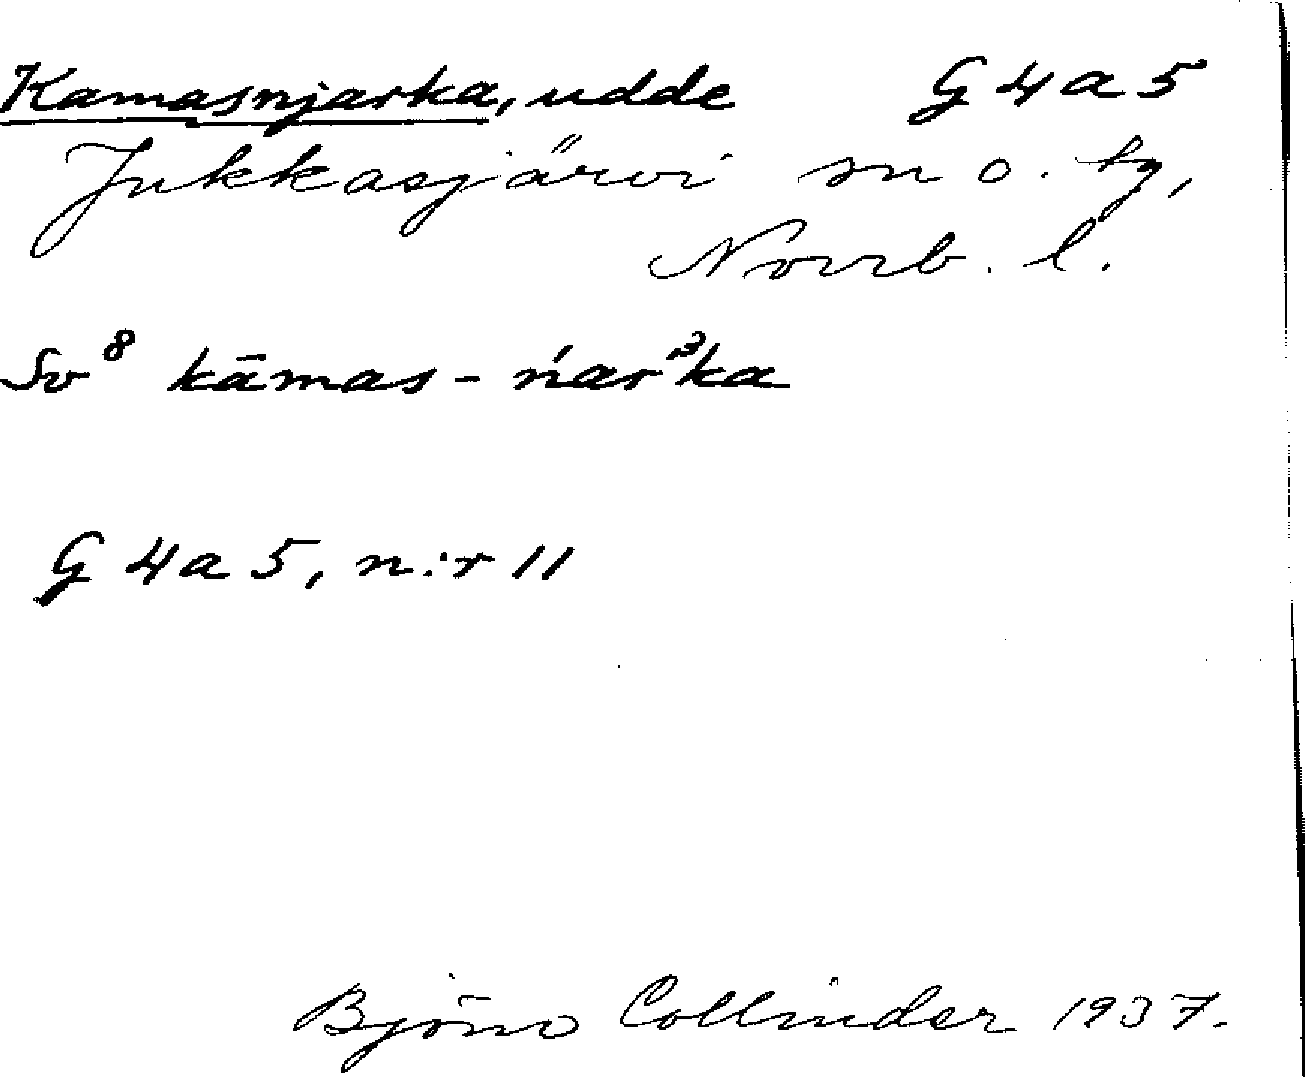 Kamasnjarka, udde G 4 a 5
Jukkasjärvi sn o. tg,
Norrb. l.
Sv⁸ kāmas-ńarᵊka
G 4 a 5, n:r 11
Björn Collinder 1937.